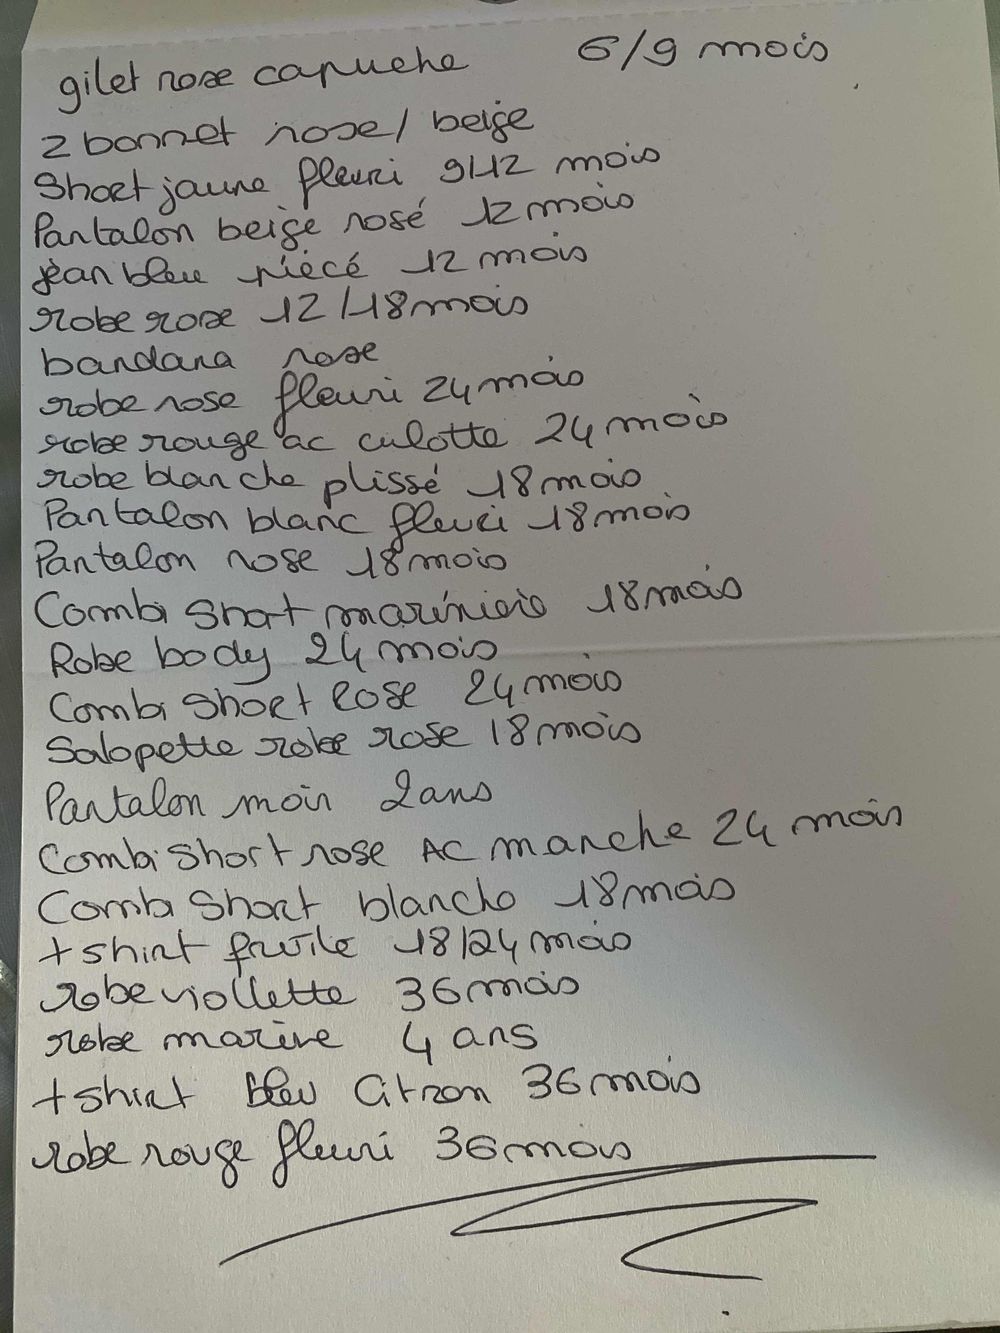 gilet rose capuche 6/9 mois
2 bonnet rose/ beige
Short jaune fleuri 9/12 mois
Pantalon beige rosé 12 mois
jean bleu piécé 12 mois
robe rose 12/18 mois
bandana rose
robe rose fleuri 24 mois
robe rouge ac culotte 24 mois
robe blanche plissé 18 mois
Pantalon blanc fleuri 18 mois
Pantalon rose 18 mois
Combi Short 18 mois
Robe body 24 mois
Combi Short Rose 24 mois
Salopette robe rose 18 mois
Pantalon moir 2 ans
Combi Short rose AC manche 24 mois
Combi Short blanche 18 mois
t shirt 18/24 mois
robe viollette 36 mois
robe marine 4 ans
t shirt bleu Citron 36 mois
robe rouge fleuri 36 mois